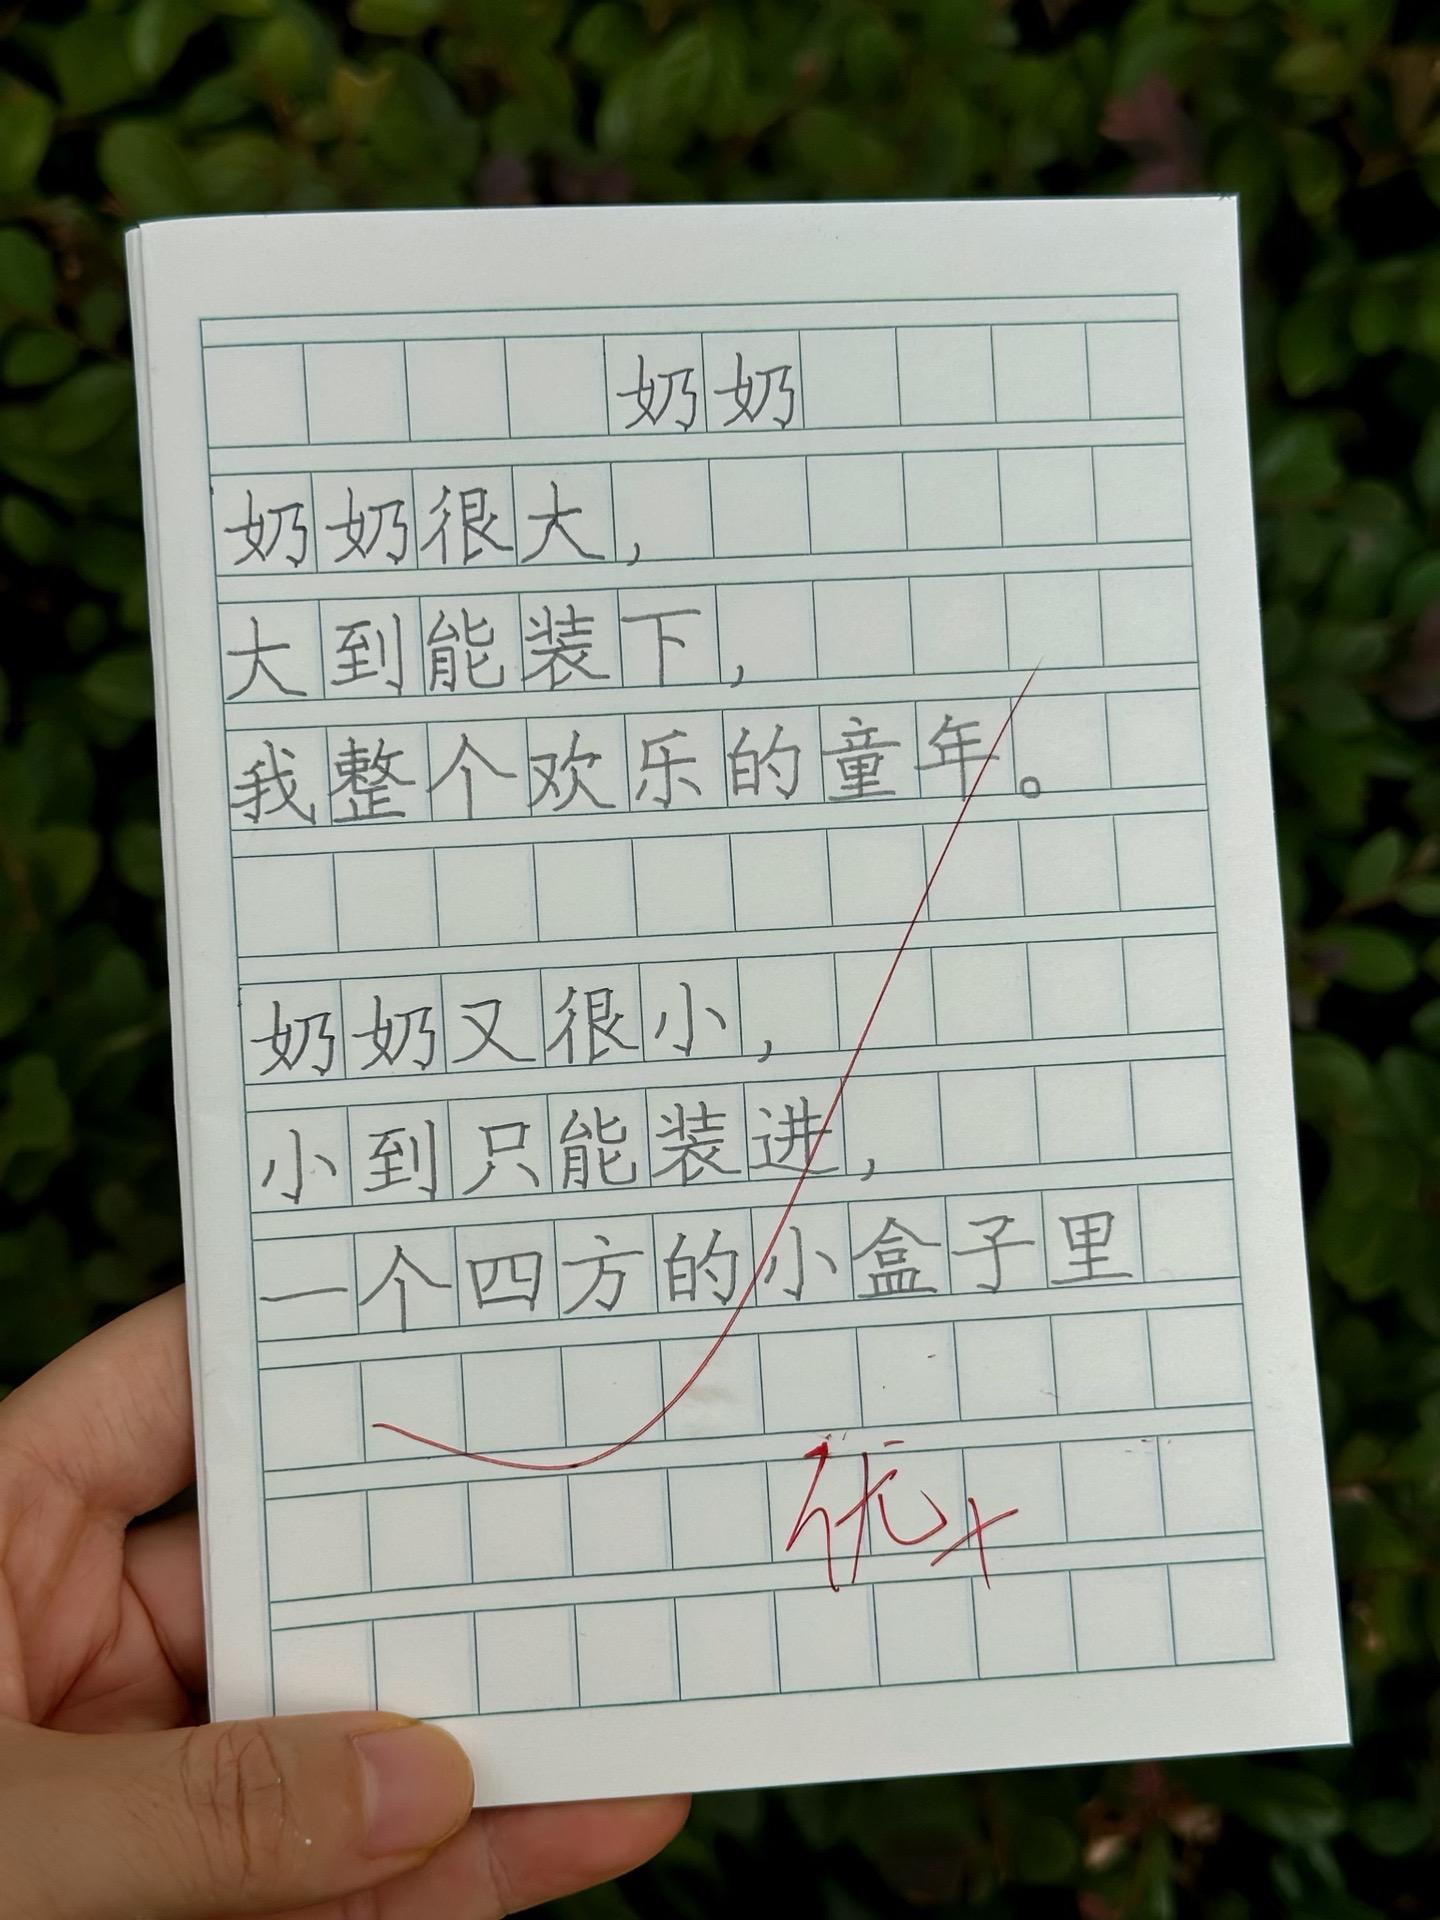 奶奶
奶奶很大，
大到能装下，
我整个欢乐的童年。
奶奶又很小，
小到只能装进，
一个四方的小盒子里
优+